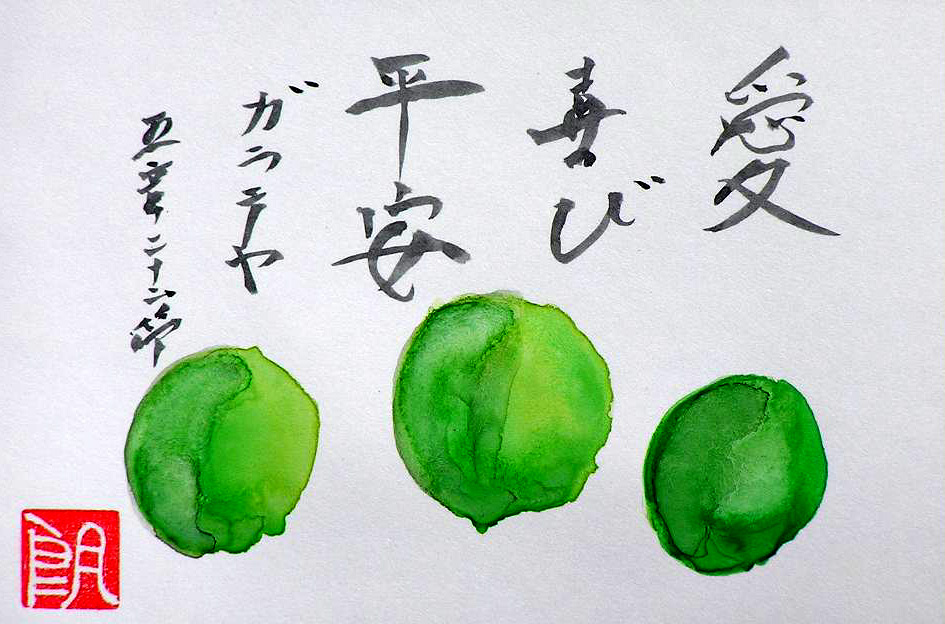 愛
喜び
平安
ガラテヤ
五章二十二節
朗